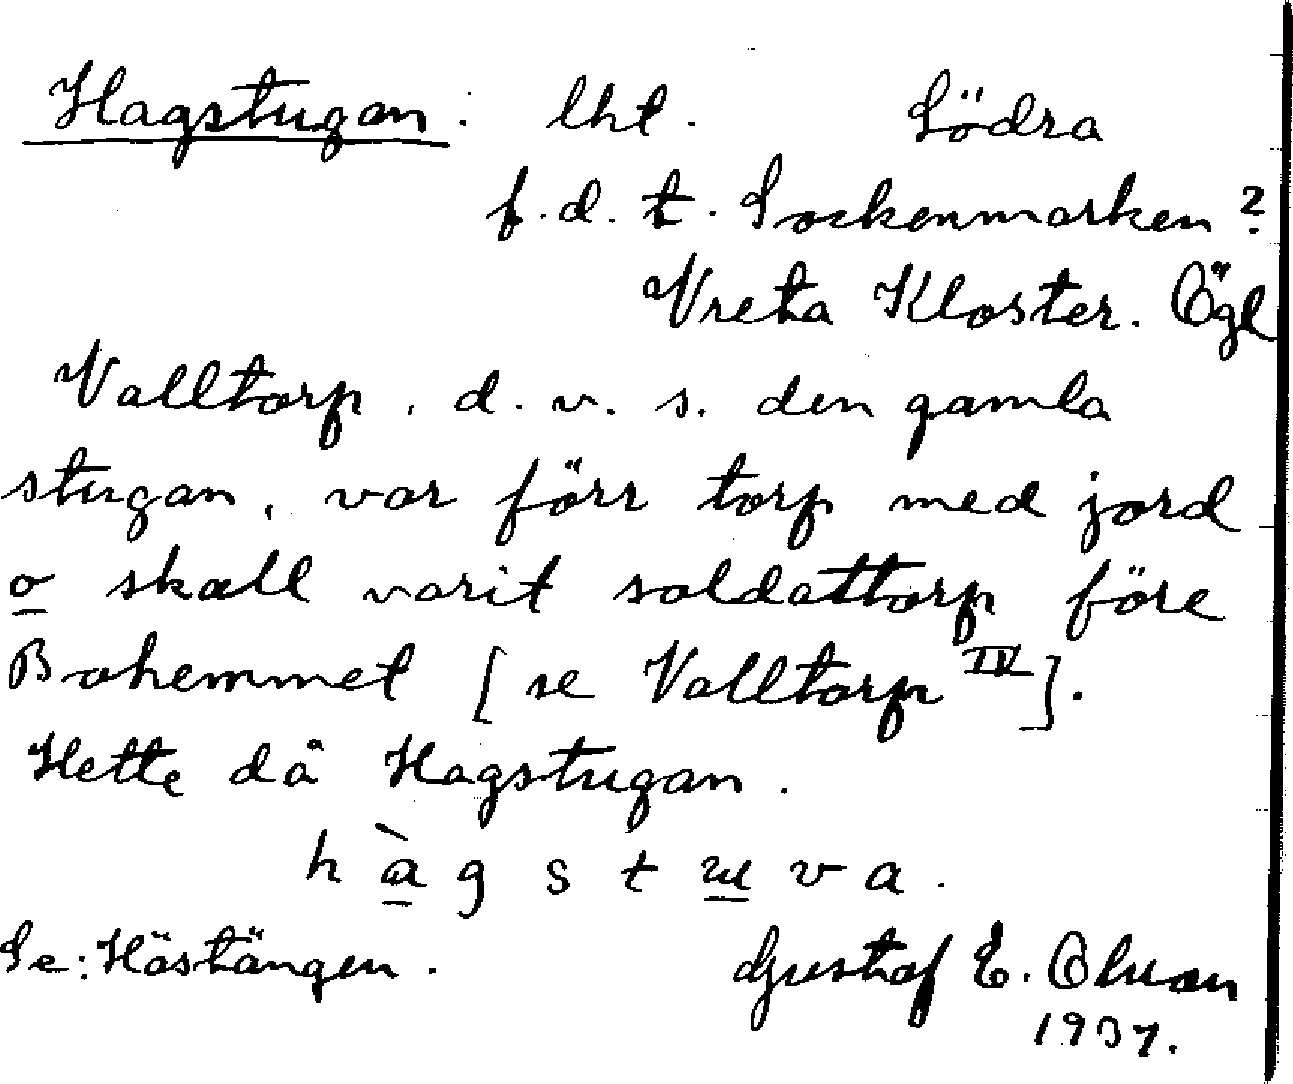 Hagstugan: lht. Södra
f.d. t. Sockenmarken?
Vreta Kloster. Ögl
Valltorp, d.v.s. den gamla
stugan, var förr torp med jord
o skall varit soldattorp före
Bohemmet [se Valltorp IV].
Hette då Hagstugan.
h à g s t u v a.
Se: Hästängen. Gustaf E. Olsson
1937.